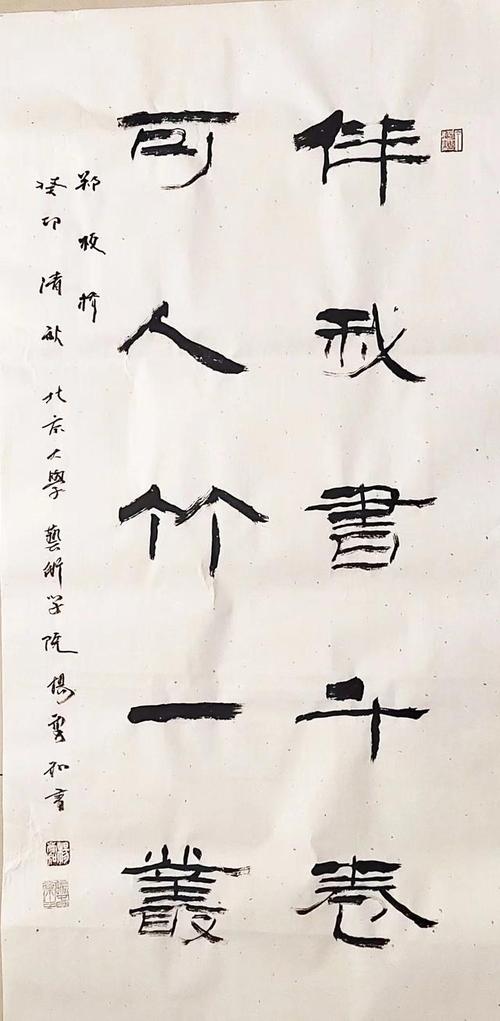 伴我書千卷
可人竹一叢
鄭板橋
癸卯清秋 北京大學 藝術学院 楊雪
書